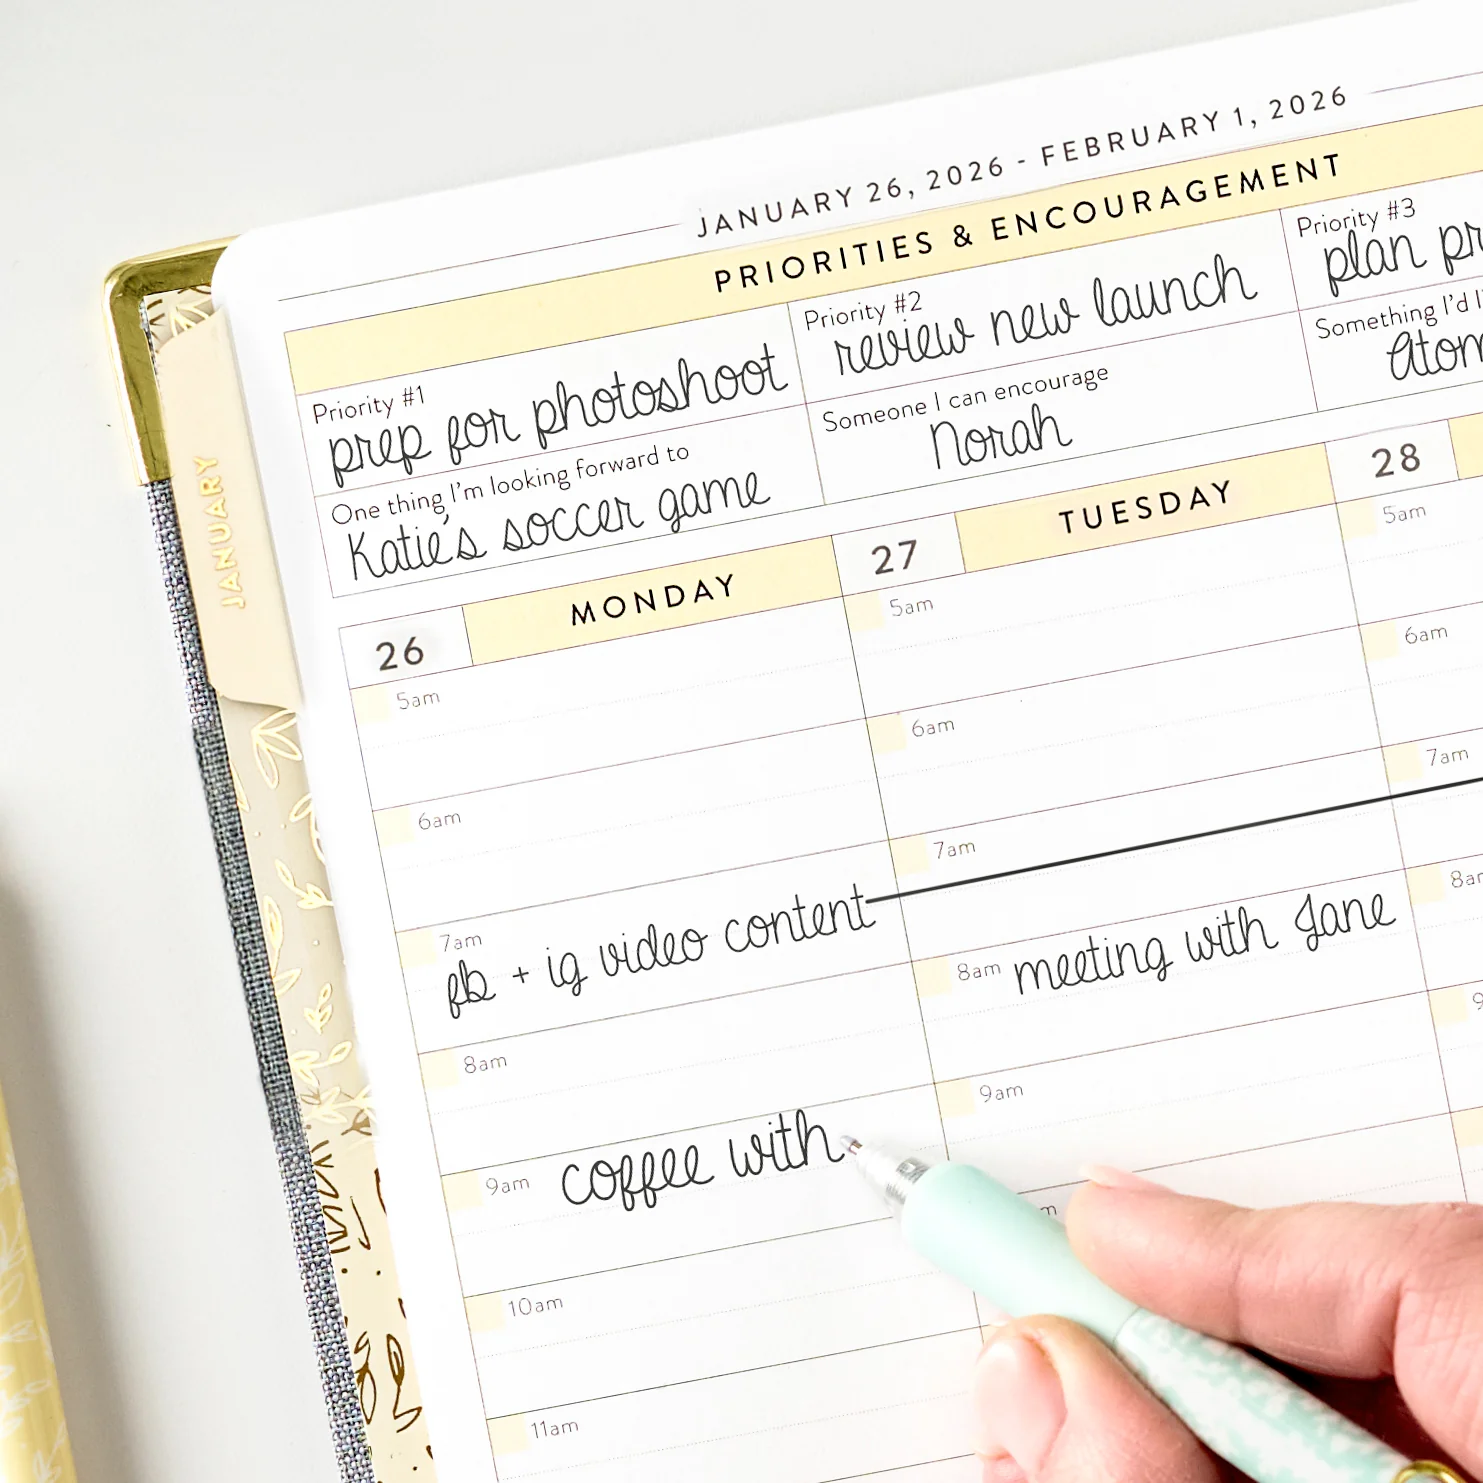 JANUARY 26, 2026 - FEBRUARY 1, 2026
PRIORITIES & ENCOURAGEMENT
Priority #1
prep for photoshoot
Priority #2
review new launch
Priority #3
plan
One thing I'm looking forward to
Katie's soccer game
Someone I can encourage
Norah
Something I'd
JANUARY
26
MONDAY
5am
6am
7am
fb + ig video content
8am
9am
coffee with
10am
11am
27
TUESDAY
5am
6am
7am
8am
meeting with Jane
9am
28
5am
6am
7am